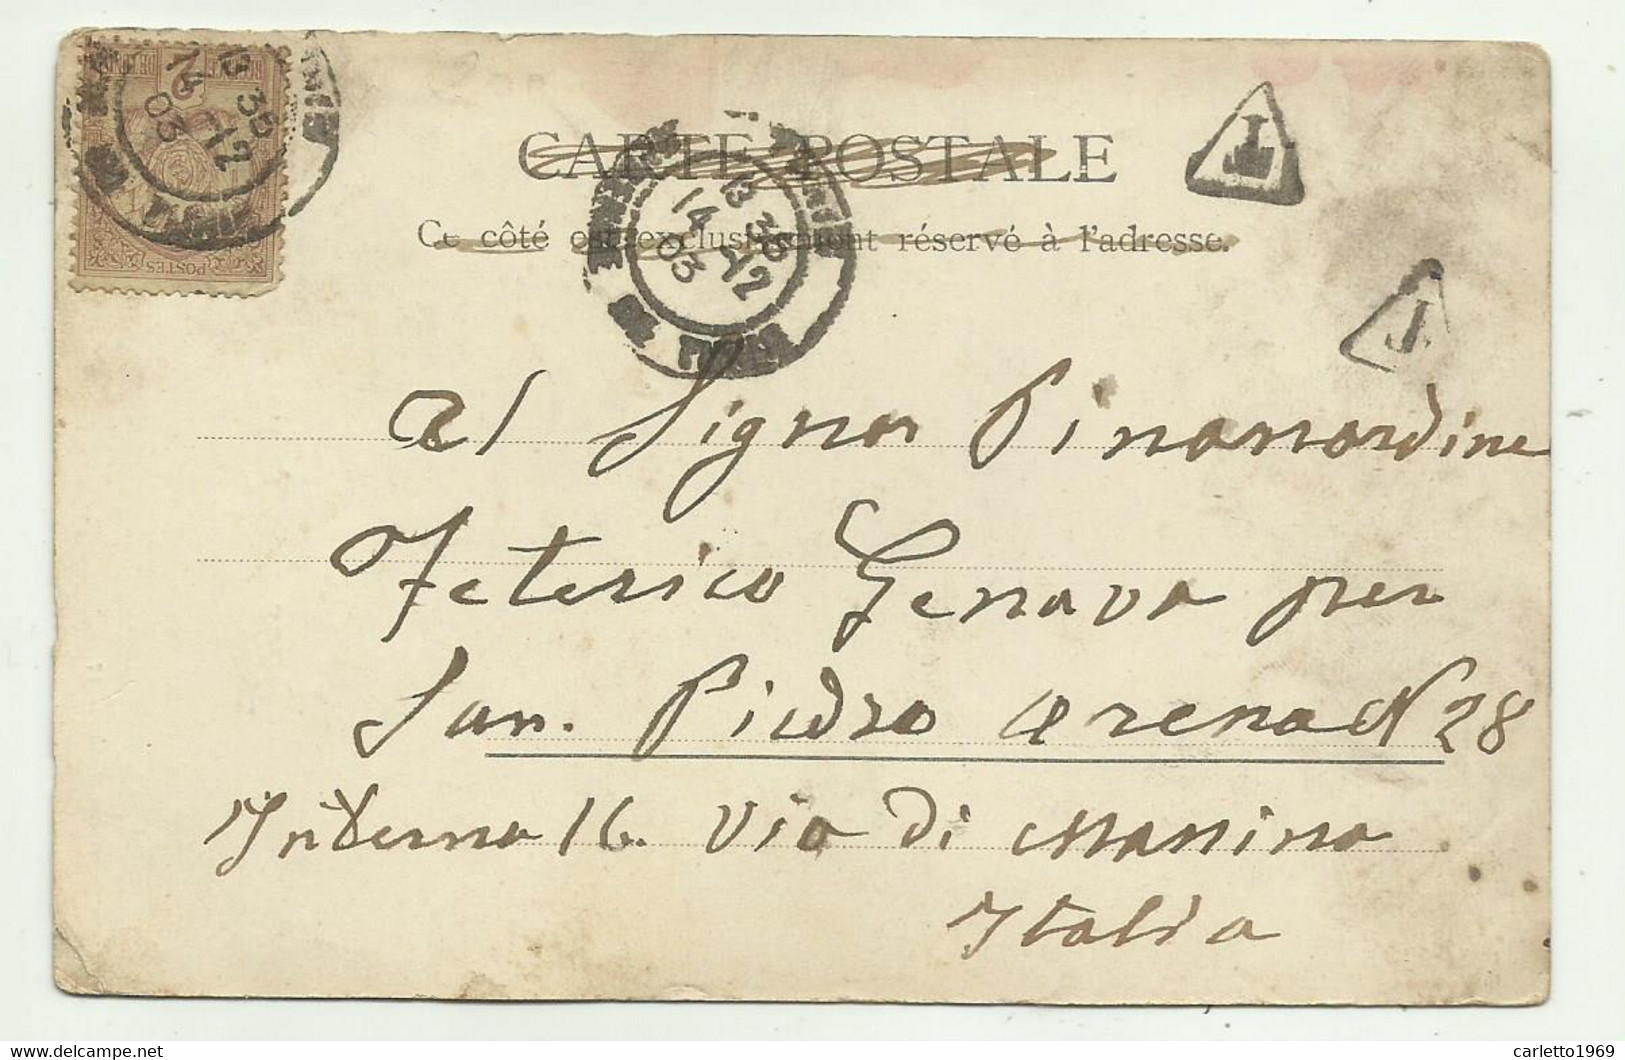 CARTE POSTALE
Ce côté est exclusivement réservé à l'adresse.
T
T
13 30
14 12
03
13 30
14 12
03
POSTES
al Signor Pinanardine
Feterico Genava per
San. Piedro arena N 28
Interna 16. Via di Mamina
Italia
www.delcampe.net
carletto1969